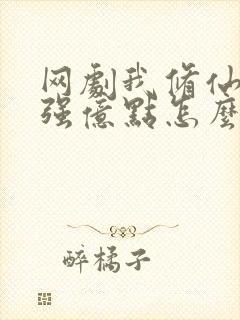 网劇我修仙
强億點怎麼
醉橘子